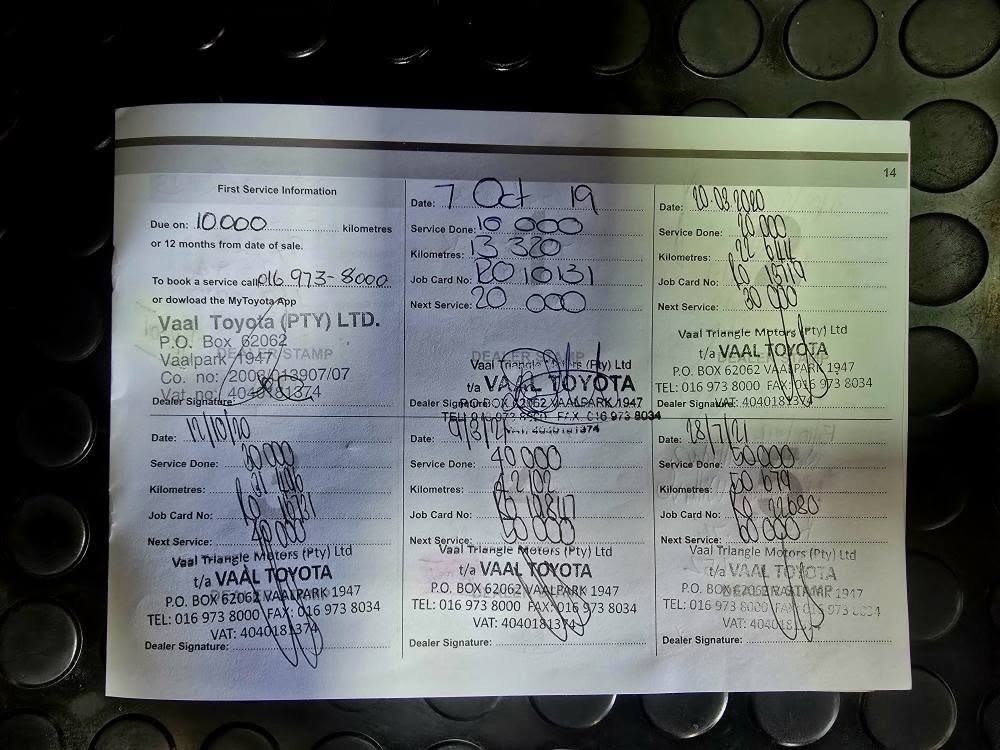 14
First Service Information
Due on: 10.000 kilometres
or 12 months from date of sale.
To book a service call: 016 973-8000
or dowload the MyToyota App
Vaal Toyota (PTY) LTD.
P.O. Box 62062
Vaalpark 1947
DEALER STAMP
Co. no: 2006/013907/07
Vat no: 4040181374
Dealer Signature:
Date: 7 Oct 19
Service Done: 10 000
Kilometres: 13 320
Job Card No: RO 10131
Next Service: 20 000
DEALER STAMP
Vaal Triangle Motors (Pty) Ltd
t/a VAAL TOYOTA
Dealer Signature:
P.O. BOX 62062 VAALPARK 1947
TEL: 016 973 8000 FAX: 016 973 8034
VAT: 4040181374
Date: 20.03.2020
Service Done: 20 000
Kilometres: 22 644
Job Card No:
Next Service: 30 000
Vaal Triangle Motors (Pty) Ltd
t/a VAAL TOYOTA
P.O. BOX 62062 VAALPARK 1947
TEL: 016 973 8000 FAX: 016 973 8034
Dealer Signature:
VAT: 4040181374
Date: 12/10/20
Service Done: 30 000
Kilometres:
Job Card No:
Next Service: 40 000
Vaal Triangle Motors (Pty) Ltd
t/a VAAL TOYOTA
P.O. BOX 62062 VAALPARK 1947
TEL: 016 973 8000 FAX: 016 973 8034
VAT: 4040181374
Dealer Signature:
Date: 9/3/21
Service Done: 40 000
Kilometres: 42 102
Job Card No:
Next Service: 50 000
Vaal Triangle Motors (Pty) Ltd
t/a VAAL TOYOTA
P.O. BOX 62062 VAALPARK 1947
TEL: 016 973 8000 FAX: 016 973 8034
VAT: 4040181374
Dealer Signature:
Date: 28/7/21
Service Done: 50000
Kilometres: 50 679
Job Card No: RO 22680
Next Service: 60 000
Vaal Triangle Motors (Pty) Ltd
t/a VAAL TOYOTA
P.O. BOX 62062 VAALPARK 1947
DEALER STAMP
TEL: 016 973 8000 FAX: 016 973 8034
VAT: 4040181374
Dealer Signature: